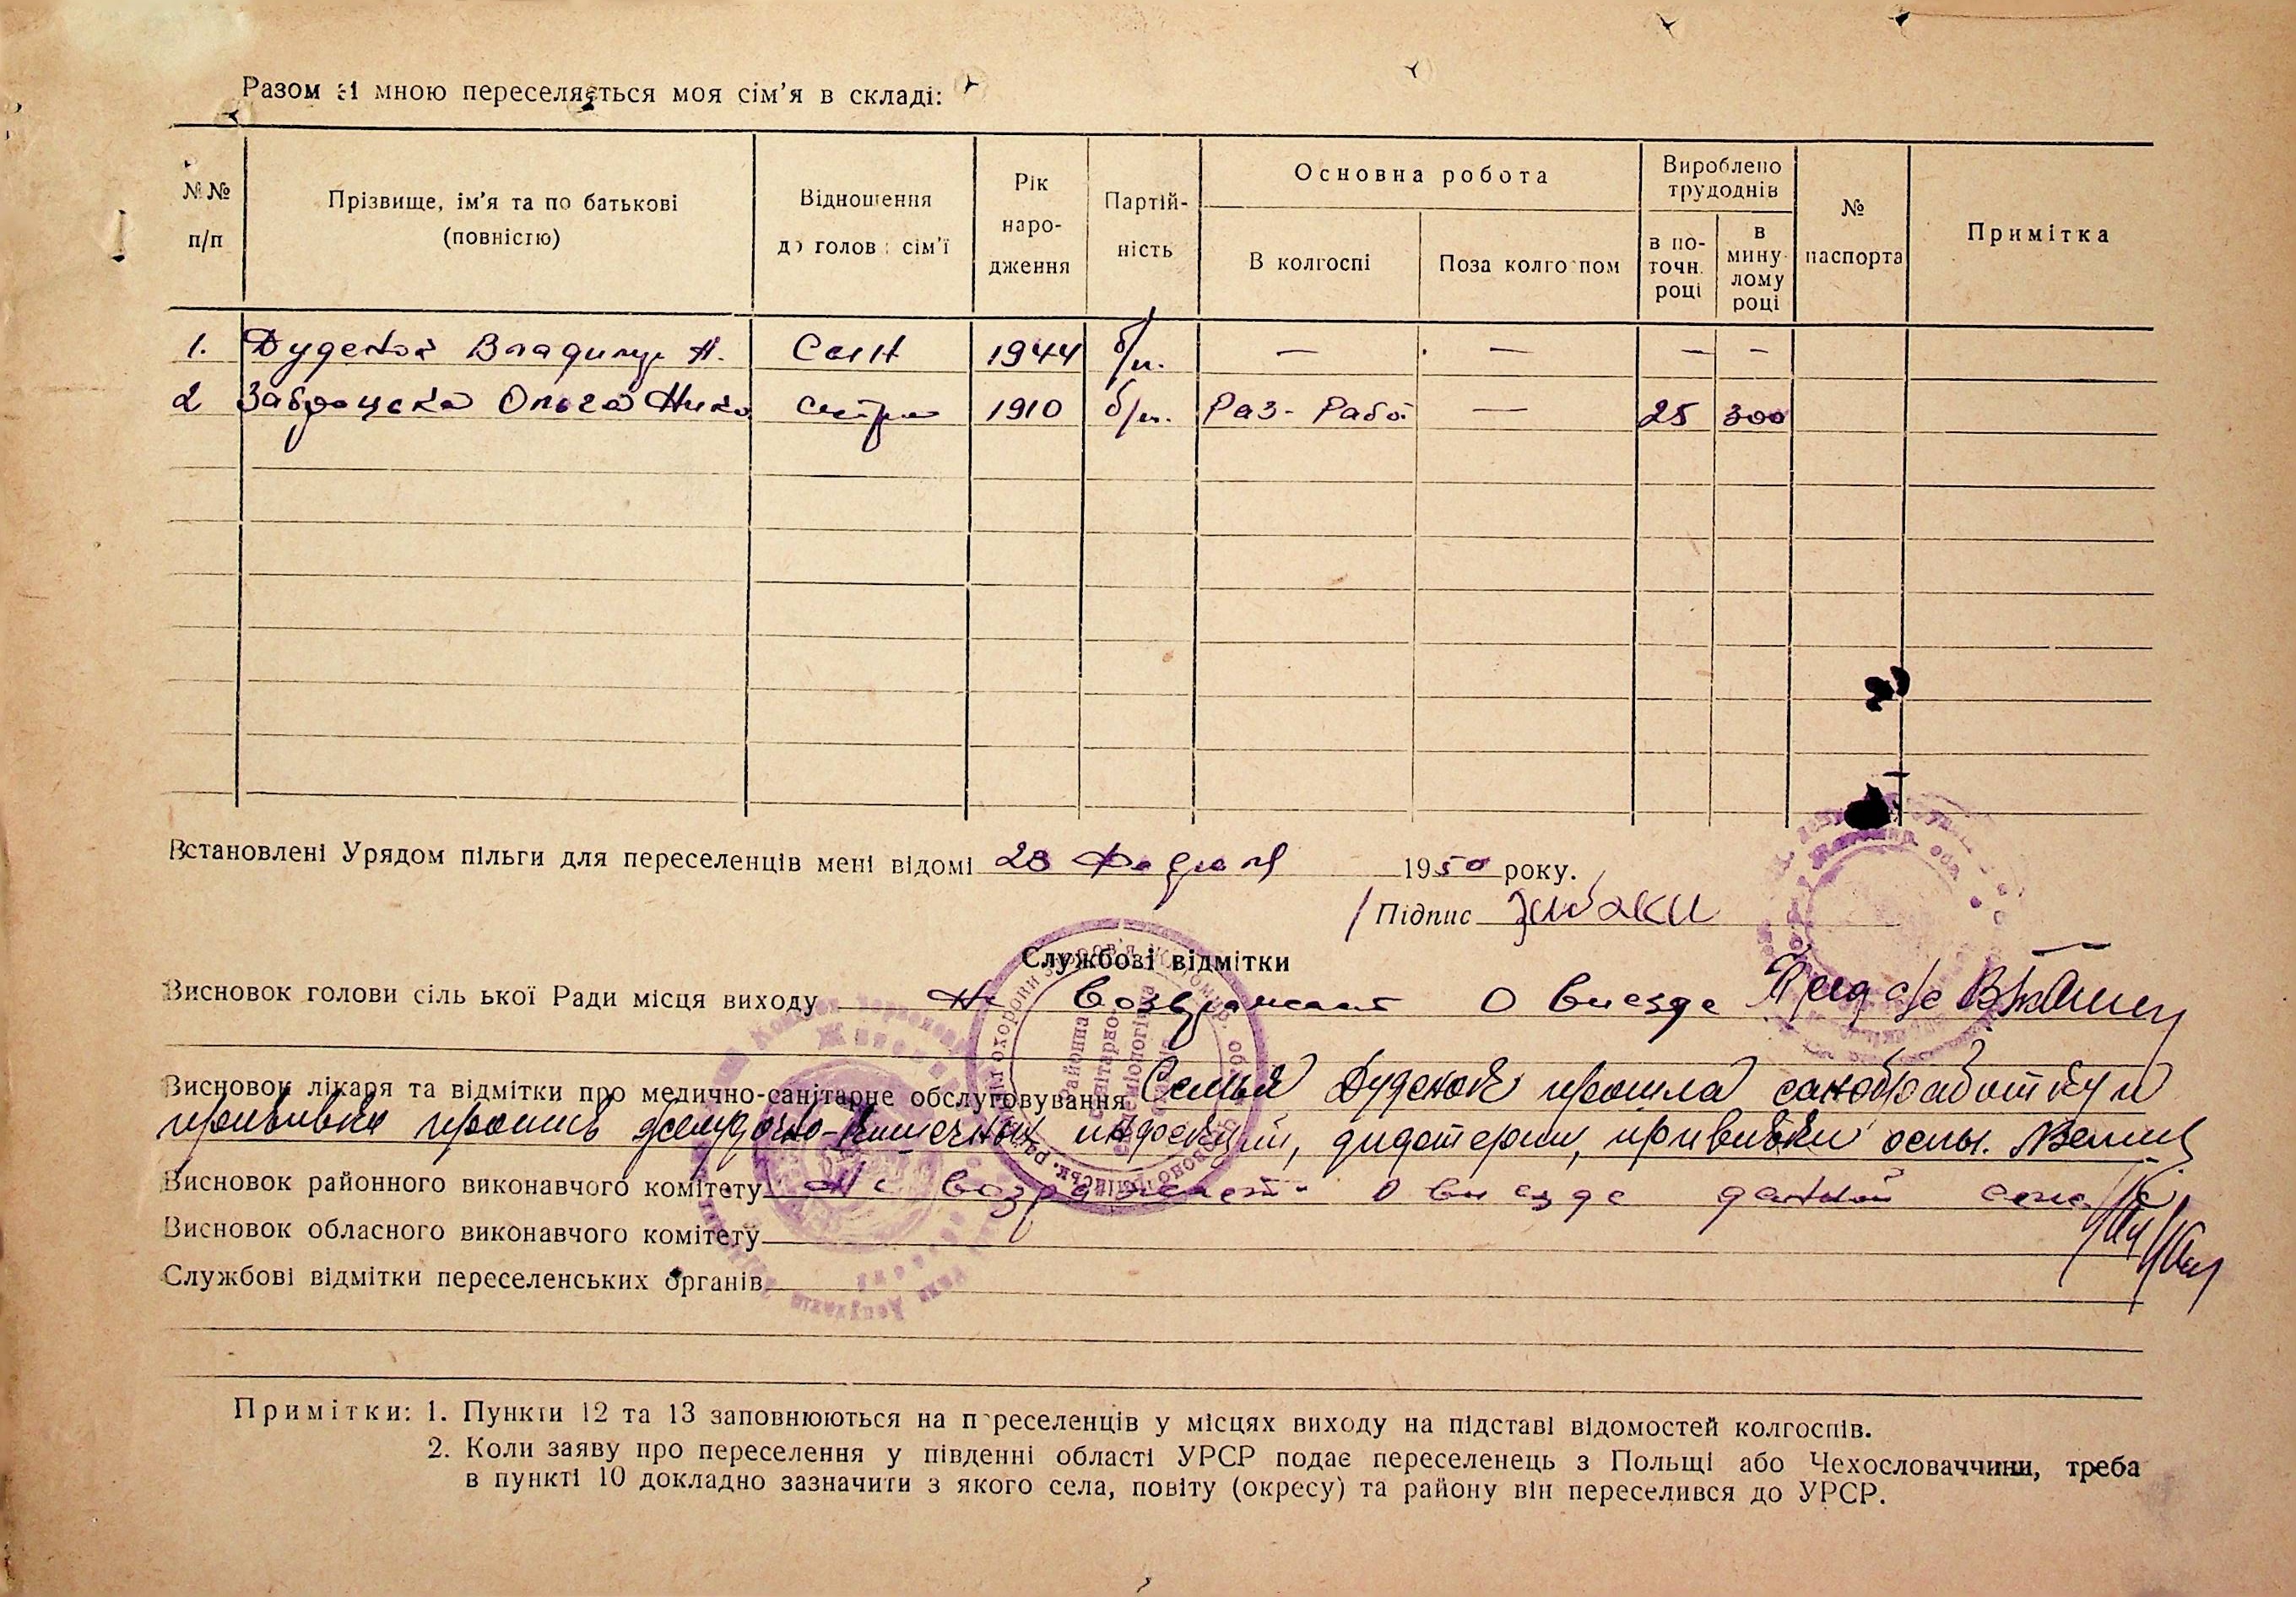 Разом зі мною переселяється моя сім'я в складі:
№№ п/п
Прізвище, ім'я та по батькові (повністю)
Відношення до голови сім'ї
Рік народження
Партійність
Основна робота
В колгоспі
Поза колгоспом
Вироблено трудоднів
в поточн. році
в минулому році
№ паспорта
Примітка
1. Дуденок Владимир Н. Сын 1944 б/п. — — — —
2 Ольга Нико сестра 1910 б/п. Раз- Рабо — 25 300
Встановлені Урядом пільги для переселенців мені відомі 23 1950 року.
Підпис
Службові відмітки
Висновок голови сільської Ради місця виходу Не возражает О выезде Пред с/с
Висновок лікаря та відмітки про медично-санітарне обслуговування Семья Дуденок прошла санобработку и
прививки против желудочно-кишечных инфекций, дифтерии, прививки оспы.
Висновок районного виконавчого комітету Не возражает О выезде данной
Висновок обласного виконавчого комітету
Службові відмітки переселенських органів
Примітки: 1. Пункти 12 та 13 заповнюються на переселенців у місцях виходу на підставі відомостей колгоспів.
2. Коли заяву про переселення у південні області УРСР подає переселенець з Польщі або Чехословаччини, треба
в пункті 10 докладно зазначити з якого села, повіту (окресу) та району він переселився до УРСР.